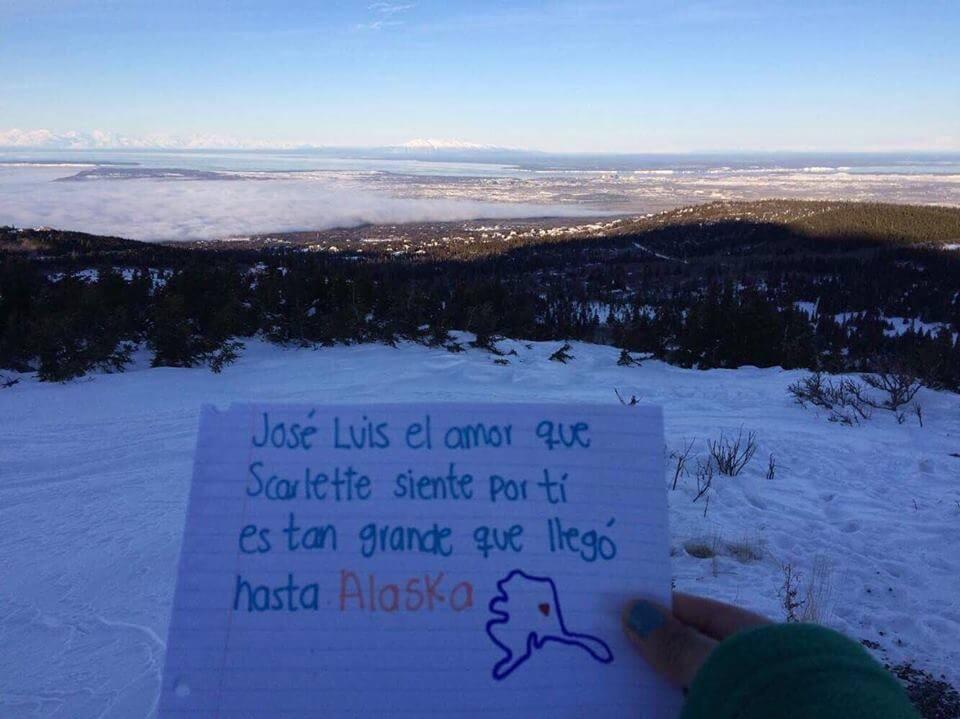 José Luis el amor que
Scarlette siente por tí
es tan grande que llegó
hasta Alaska